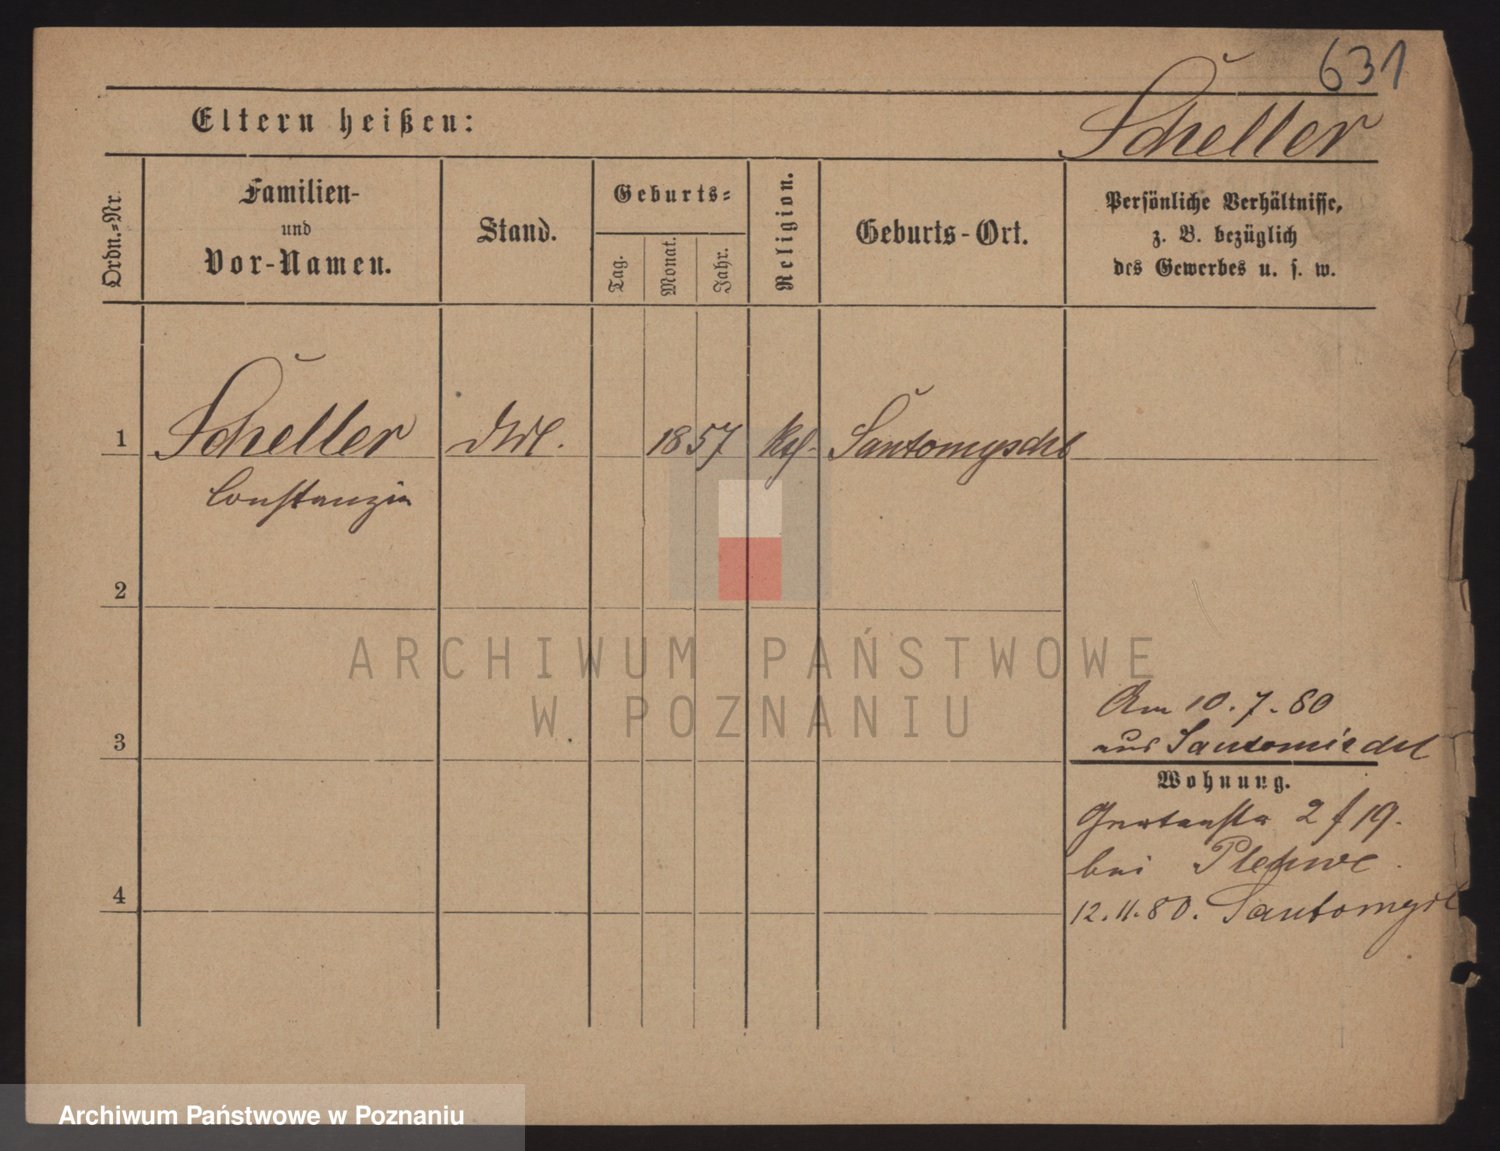 631
Eltern heißen:
Scheller
Ordn.-Nr.
Familien-
und
Vor-Namen.
Stand.
Geburts-
Tag.
Monat.
Jahr.
Religion.
Geburts-Ort.
Persönliche Verhältnisse,
z. B. bezüglich
des Gewerbes u. s. w.
1 Scheller 1857 Santomyschl
Constanzia
2
ARCHIWUM PAŃSTWOWE
W POZNANIU
Am 10.7.80
3 aus Santomischl
Wohnung.
Gartenstr 2 f 19.
bei Plehwe
4 12.11.80. Santomysl
Archiwum Państwowe w Poznaniu